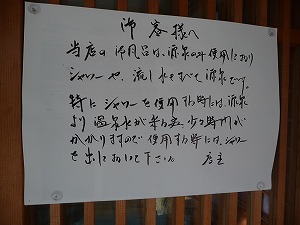 御客様へ
当店の御風呂は、源泉のみ使用しており
シャワーや、流し水もすべて源泉です。
特にシャワーを使用する時には、源泉
より温泉水が来る迄少々時間が
かかりますので使用する時には、シャワー
を出しておいて下さい。 店主